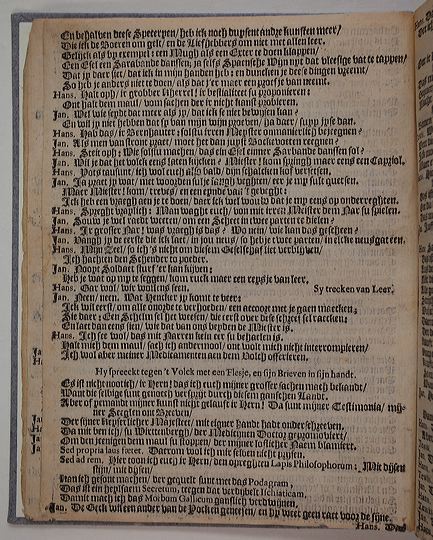 En behalven deese Speerreyn/ heb ick noch duysent andre kunsten meer/
Die ick de Boeren om gelt/ en de Liefhebbers om niet met allen leer.
Gelijck als by exempel: een Mugh als een Exter te doen klappen/
Een Esel een Sarabande danssen/ ja selfs Spaensche Wijn uyt dat vleesige vat te tappen/
Dat jy daer siet/ dat ick in mijn handen heb: en duncken je dese dingen vreemt/
So heb je anders niet te doen/ als dat j'er maer een proef je van neemt.
Hans. Halt oph/ ir grobber ihr seit ir
Ont halt dem maul/ von sachen der ir nicht kanst probleren.
Jan. Wel wie seydt dat meer als jy/ dat ick se niet bewijsen kan?
En wil jy niet hebben dat ick van mijn wijn proeven/ ha daer/
Hans. Hab das/ ir Bernhauter: solsu irren Meyster onmanierlich bejeegnen?
Jan. Als men van stront praet/ moet het dan juyst Stockvotten reegnen?
Hans. Steit oph: Wie solsu machen/ das ein Esel einner Sarbande danssen sol?
Jan. Wil je dat het volck eens laten kijcken? Meister! kom springh maer eens een Capriol.
Hans. Pots tausint/ ich wol euch alsbald/ dijn schalcken kof versetsen.
Jan. Ja praet jy wat/ met woorden sulje langh veghten/ eer je my sult quetsen.
Maer Meister! kom/ terwijl
Ick heb een vraegh aen je te doen/ daer ick wel wouw dat je my eens op onderreghten.
Hans. Spreght vraplich: Man waght euch/ von mit irren Meister dem Nar su spielen.
Jan. Souw je wel raedt weeten/ om een Scheet in twee parten te dielen?
Hans. Ir grosser Nar! was waegh is das? Wo nein/ wie kan das gescheen?
Jan. Vangh jy de eerste die ick laet/ in jou neus/ so heb je twee parten/ in elcke neusgat een.
Hans. Mijn Zeel/ so ich's nicht om diesem Geselschaf liet verblijven/
Ich hachten den Schender to poeder.
Jan. Noopt Soldaet surf t'er kan kijven:
Heb je wat op my te seggen/ kom ruck maer een reysje van leer.
Hans. Gar wol/ wie wollens seen. Sy trecken van Leer.
Jan. Neen/ neen. Wat Hencker jy komt te veer:
Ick wil eerst/ om alle onordre te verhoeden/ een accoort met je gaen maecken:
Sie daer: Een Schelm is't het weesen/ die eerst over dese schreef sel raecken:
En laet dan eens sien/ wie dat van ons beyden de Meister is.
Hans. Ich see wol/ das mit Narren kein eer su behaelen is.
Halt mich dem maul/ sach ich andermol/ ont wolt mich nicht interrompieren/
Ich wol aber meiner Medicamenten aen dem Volch offerieren.
Hy spreeckt teegen 't Volck met een Flesje, en sijn Brieven in sijn handt.
Es ist nicht nootich/ ir Heren! das ich euch mijner grosser sachen mach bekandt/
Want die selbige sunt genoech ver spreyt durch diesem ganschen Landt.
Aber of yemandt mijner kunst nicht gelaust ir Heren! Da sunt mijner Testimonia, mijner
Seeglen ont Breven/
Der sijner Keyserlicher Maiesteet/ mit eigner handt hade onderschreeven.
Da mit ben ich/ su Wittenbergh/ der Medicijnen Doctor gepromoviert/
Om den jeenigen dem maul su stoppen/ der mijner loflicher Naem blameert.
Sed propria laus fœtet. Darom wol ich mir selben nicht prijsen.
Sed ad rem. Hier ton ich euch ir Heren/ den opreghten Lapis Philosophorum: Mit dijsen
steijn/ mit dijsen/
Kan ich gesont machen/ der gequelt sunt met das Podagram,
Das ist ein heylsaem Secretum, teegen dat verduyvelt Ischiaticam,
Damit mach ich das Morbum Gallicum ganslich verdwijnen.
Jan. De Geck wil een ander van de Pocken geneesen/ en hy weet geen raet voor de sijne.
Hans. Was